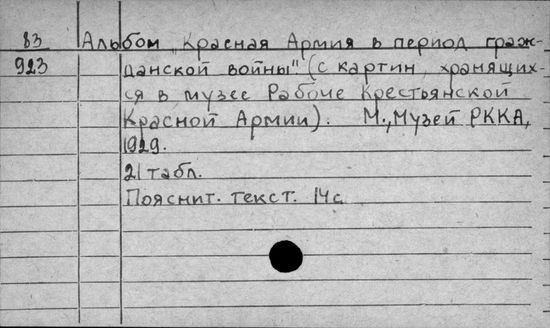 83 Альбом „Красная Армия в период граж-
923 данской войны" (с картин, хранящих-
ся в музее Рабоче Крестьянской
Красной Армии). М., Музей РККА,
1929.
21 табл.
Пояснит. текст. 14 с